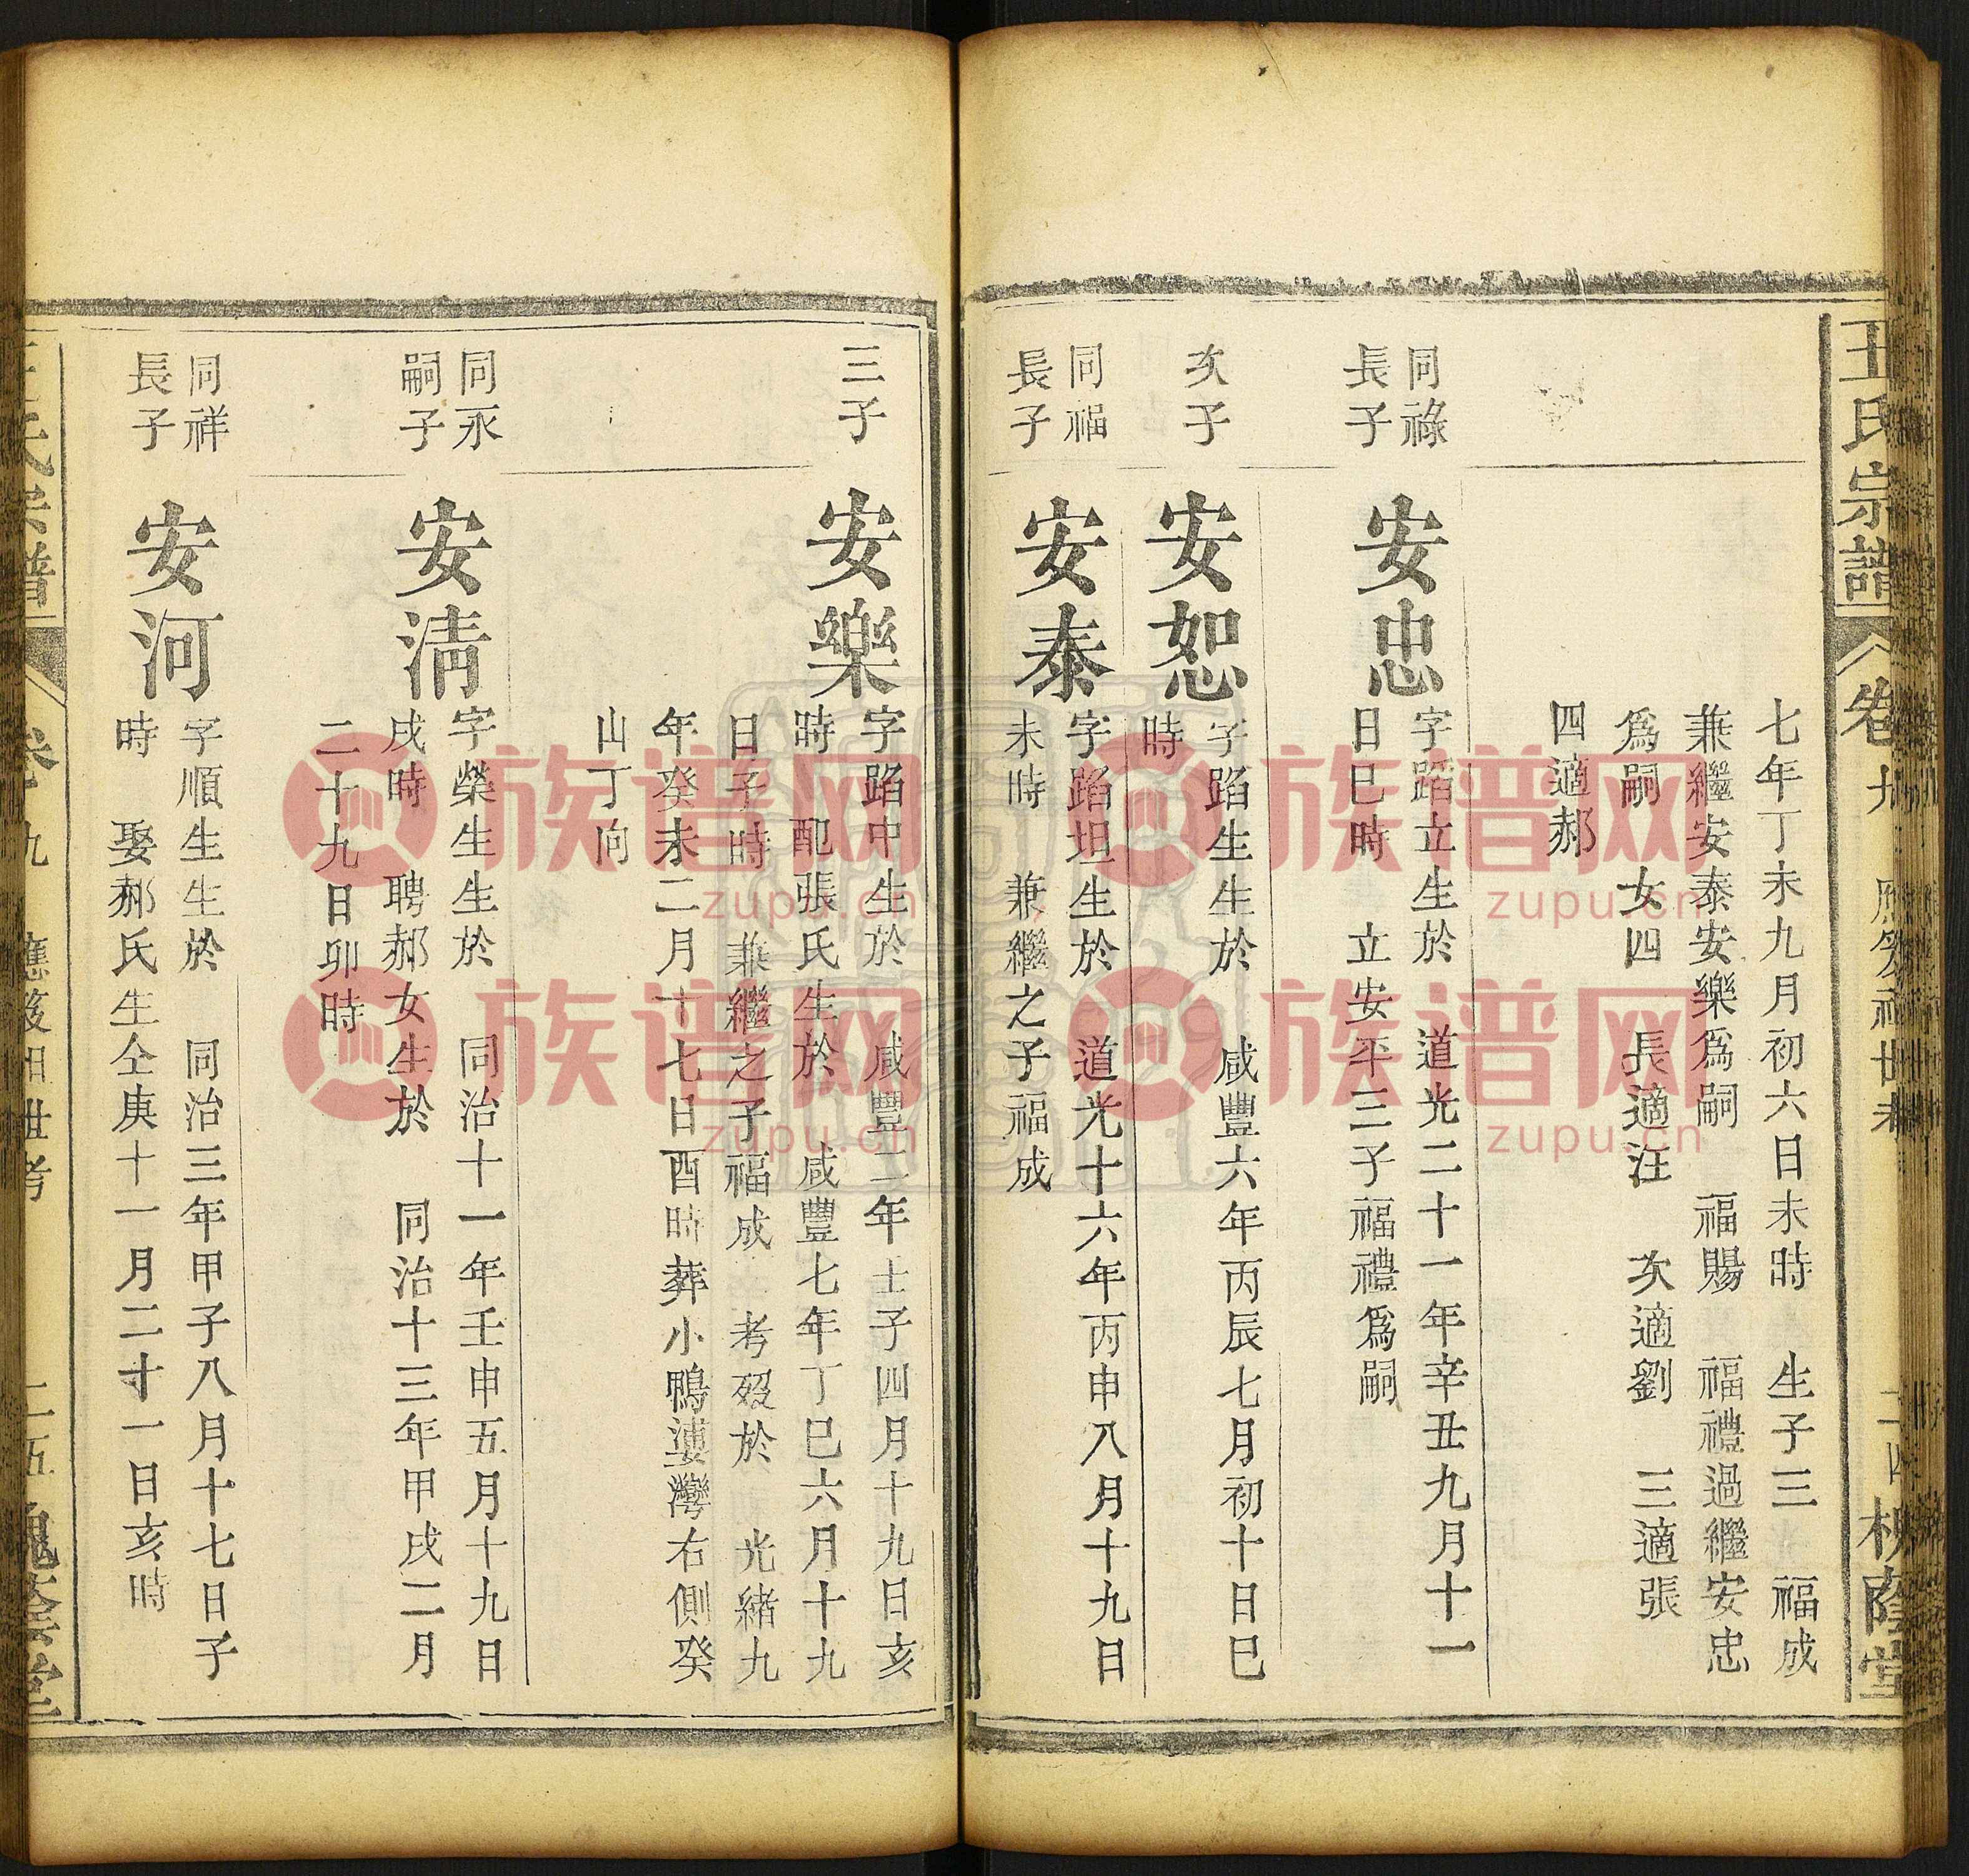 王氏宗譜
卷九
二四
七年丁未九月初六日未時　生子三　福成
兼繼安泰安樂爲嗣　福賜　福禮過繼安忠
爲嗣　女四　長適汪　次適劉　三適張
四適郝
同祿
長子
安忠
字蹈立生於　道光二十一年辛丑九月十一
日巳時　立安平三子福禮爲嗣
次子
安恕
字蹈生生於　咸豐六年丙辰七月初十日巳
時
同福
長子
安泰
字蹈坦生於　道光十六年丙申八月十九日
未時　兼繼之子福成
三子
安樂
字蹈中生於　咸豐二年壬子四月十九日亥
時　配張氏生於　咸豐七年丁巳六月十九
日子時　兼繼之子福成　考歿於　光緒九
年癸未二月十七日酉時葬小鴨灣右側癸
山丁向
同永
嗣子
安清
字榮生生於　同治十一年壬申五月十九日
戌時　聘郝女生於　同治十三年甲戌二月
二十九日卯時
同祥
長子
安河
字順生生於　同治三年甲子八月十七日子
時　娶郝氏生仝庚十一月二十一日亥時
卷九
世考
二五
族谱网
zupu.cn
族谱网
zupu.cn
族谱网
zupu.cn
族谱网
zupu.cn